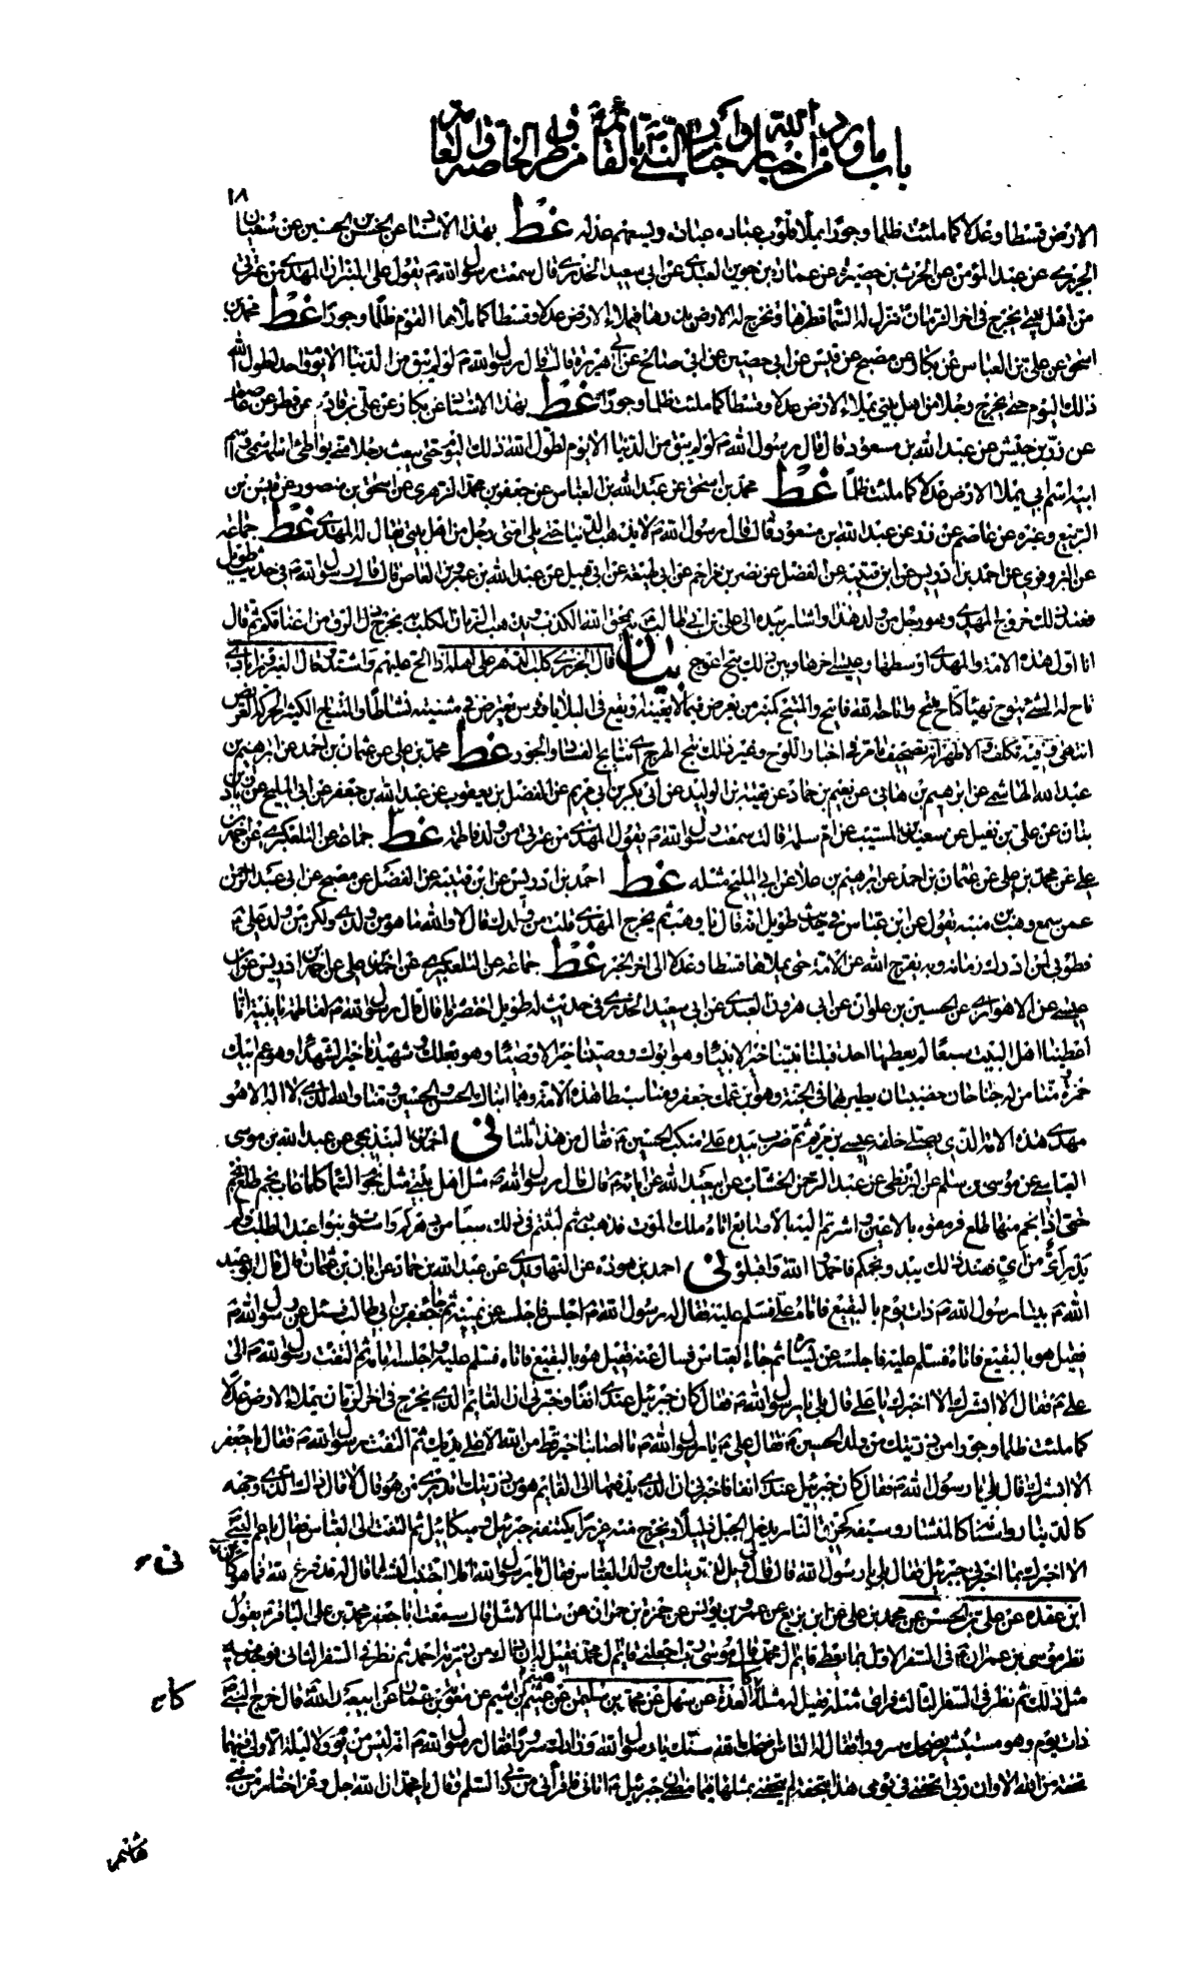 باب ما ورد من أخبار الله وأخبار النبي بالقائم من طرق الخاصة والعامة
١٨
الارض قسطا وعدلا كما ملئت ظلما وجورا يملا قلوب عباده عبادة ويسعهم عدله غط بهذا الاسناد عن الحسن بن الحسين عن سفيان
الجريري عن عبد المؤمن عن الحرث بن حصيرة عن عمارة بن جوين العبدي عن ابي سعيد الخدري قال سمعت رسول الله ص يقول على المنبر ان المهدي من عترتي
من اهل بيتي يخرج في اخر الزمان تنزل له السماء قطرها وتخرج له الارض بذرها فيملاء الارض عدلا وقسطا كما ملأها القوم ظلما وجورا غط محمد بن
اسحق عن علي بن العباس عن بكار عن مصبح عن قيس عن ابي حصين عن ابي صالح عن ابي هريرة قال قال رسول الله ص لو لم يبق من الدنيا الا يوم واحد لطول الله
ذلك اليوم حتى يخرج رجلا من اهل بيتي يملاء الارض عدلا وقسطا كما ملئت ظلما وجورا غط بهذا الاسناد عن بكار عن علي بن قادم عن فطر عن عاصم
عن زر بن حبيش عن عبد الله بن مسعود قال قال رسول الله ص لو لم يبق من الدنيا الا يوم لطول الله ذلك اليوم حتى يبعث رجلا مني يواطئ اسمه اسمي واسم
ابيه اسم ابي يملا الارض عدلا كما ملئت ظلما غط محمد بن اسحق عن عبد الله بن العباس عن جعفر بن محمد الزهري عن اسحق بن منصور عن قيس بن
الربيع وغيره عن عاصم عن زر عن عبد الله بن مسعود قال قال رسول الله ص لا يذهب الدنيا حتى يلي امتي رجل من اهل بيتي يقال له المهدي غط جماعة
عن البزوفري عن احمد بن ادريس عن ابن قتيبة عن الفضل عن نصر بن مزاحم عن ابي لهيعة عن ابي قبيل عن عبد الله بن عمرو بن العاص قال قال رسول الله ص في حديث طويل
فعند ذلك خروج المهدي وهو رجل من ولد هذا واشار بيده الى علي بن ابي طالب به يمحق الله الكذب ويذهب الزمان الكلب به يخرج ذل الرق من اعناقكم ثم قال
انا اول هذه الامة والمهدي اوسطها وعيسى اخرها وبين ذلك تيح اعوج بيان قال الجزري كلب الدهر على اهله اذا الح عليهم واشتد وقال الفيروزابادي
تاح له الشئ يتوح تهيا كتاح يتيح واتاحه الله فاتيح والمتيح كمنبر من يعرض فيما لا يعنيه او يقع في البلايا وفرس يعترض في مشيته نشاطا والمتياح الكثير الحركة العريض
انتهى وفيه تكلف والاظهر انه تصحيف ما مر في اخبار اللوح وغير ذلك نتج الهرج اي نتايج الفساد والجور غط محمد بن علي عن عثمان بن احمد عن ابرهيم بن
عبد الله الهاشمي عن ابرهيم بن هاني عن نعيم بن حماد عن عقبة بن الوليد عن ابي بكر بن ابي مريم عن الفضل بن يعقوب عن عبد الله بن جعفر عن ابي المليح عن زياد بن
بنان عن علي بن نفيل عن سعيد بن المسيب عن ام سلمة قالت سمعت رسول الله ص يقول المهدي من عترتي من ولد فاطمة غط جماعة عن التلعكبري عن احمد بن
علي عن محمد بن علي عن عثمان بن احمد عن ابرهيم بن علاء عن ابي المليح مثله غط احمد بن ادريس عن ابن قتيبة عن الفضل عن مصبح عن ابي عبد الرحمن
عمن سمع وهب بن منبه يقول عن ابن عباس في حديث طويل انه قال يا وهب ثم يخرج المهدي قلت من ولدك قال لا والله ما هو من ولدي ولكن من ولد علي ع
فطوبى لمن ادرك زمانه وبه يفرج الله عن الامة حتى يملاها قسطا وعدلا الى اخر الخبر غط جماعة عن التلعكبري عن احمد بن علي عن احمد بن ادريس عن ابن
عيسى عن الاهوازي عن الحسين بن علوان عن ابي هرون العبدي عن ابي سعيد الخدري في حديث له طويل اختصرناه قال قال رسول الله ص لفاطمة يا بنية انا
اعطينا اهل البيت سبعا لم يعطها احد قبلنا نبينا خير الانبياء وهو ابوك ووصينا خير الاوصياء وهو بعلك وشهيدنا خير الشهداء وهو عم ابيك
حمزة ومنا من له جناحان خضيبان يطير بهما في الجنة وهو ابن عمك جعفر ومنا سبطا هذه الامة وهما ابناك الحسن والحسين ومنا والله الذي لا اله الا هو
مهدي هذه الامة الذي يصلي خلفه عيسى بن مريم ثم ضرب بيده على منكب الحسين ع فقال من هذا ثلثا ني احمد بن البندنيجي عن عبد الله بن موسى
العباسي عن موسى بن سلام عن البزنطي عن عبد الرحمن الخشاب عن ابي عبد الله عن ابائه ع قال قال رسول الله ص مثل اهل بيتي مثل نجوم السماء كلما غاب نجم طلع نجم
حتى اذا نجم منها طلع فرمقوه بالاعين واشرتم اليه بالاصابع اتاه ملك الموت فذهب به ثم لبثتم في ذلك سبتا من دهركم واستوت بنو عبد المطلب ولم
يدر اي من اي فعند ذلك يبدو نجمكم فاحمدوا الله واقبلوه ني احمد بن هوذه عن النهاوندي عن عبد الله بن حماد عن ابان بن عثمان قال قال ابو عبد
الله ع بينا رسول الله ص ذات يوم بالبقيع فاتاه علي فسلم عليه فقال له رسول الله ص اجلس فاجلسه عن يمينه ثم جاء جعفر بن ابي طالب فسئل عن رسول الله ص
فقيل هو بالبقيع فاتاه فسلم عليه فاجلسه عن يساره ثم جاء العباس فسال عنه فقيل هو بالبقيع فاتاه فسلم عليه واجلسه امامه ثم التفت رسول الله ص الى
علي ع فقال الا ابشرك الا اخبرك يا علي قال بلى يا رسول الله ص فقال كان جبرئيل عندي انفا وخبرني ان القايم الذي يخرج في اخر الزمان يملاء الارض عدلا
كما ملئت ظلما وجورا من ذريتك من ولد الحسين ع فقال علي ع يا رسول الله ص ما اصابنا خير قط من الله الا على يديك ثم التفت رسول الله ص فقال يا جعفر
الا ابشرك قال بلى يا رسول الله ص فقال كان جبرئيل عندي انفا فاخبرني ان الذي يدفعها الى القايم هو من ذريتك اتدري من هو قال لا قال ذاك الذي وجهه
كالدينار واسنانه كالمنشار وسيفه كحريق النار يدخل الجبل ذليلا ويخرج منه عزيزا يكتنفه جبرئيل وميكائيل ثم التفت الى العباس فقال يا عم النبي
الا اخبرك بما اخبرني جبرئيل فقال بلى يا رسول الله قال قال لي ويل لذريتك من ولد العباس فقال يا رسول الله افلا اجتنب النساء قال له قد فرغ الله مما هو كائن
ني
ابن عقده عن علي بن الحسن عن محمد بن علي عن ابن بزيع عن عمرو بن يونس عن حمزة بن حمران عن سالم الاشل قال سمعت ابا جعفر محمد بن علي الباقر ع يقول
نظر موسى بن عمران ع في السفر الاول بما يعطى قايم ال محمد قال موسى رب اجعلني قايم ال محمد فقيل له ان ذلك من ذرية احمد ثم نظر في السفر الثاني فوجد فيه
مثل ذلك ثم نظر في السفر الثالث فراى مثله فقيل له مثله كا العدة عن سهل عن محمد بن سليمن عن هيثم بن اشيم عن معوية بن عمار عن ابي عبد الله قال خرج النبي ص
كا
ذات يوم وهو مستبشر يضحك سرورا فقال له الناس اضحك الله سنك يا رسول الله وزادك سرورا فقال رسول الله ص انه ليس من يوم ولا ليلة الا ولي فيهما
تحفة من الله الا وان ربي اتحفني في يومي هذا بتحفة لم يتحفني بمثلها فيما مضى ان جبرئيل ع اتاني فاقرأني من ربي السلم وقال يا محمد ان الله جل وعز اختار من بني
هاشم